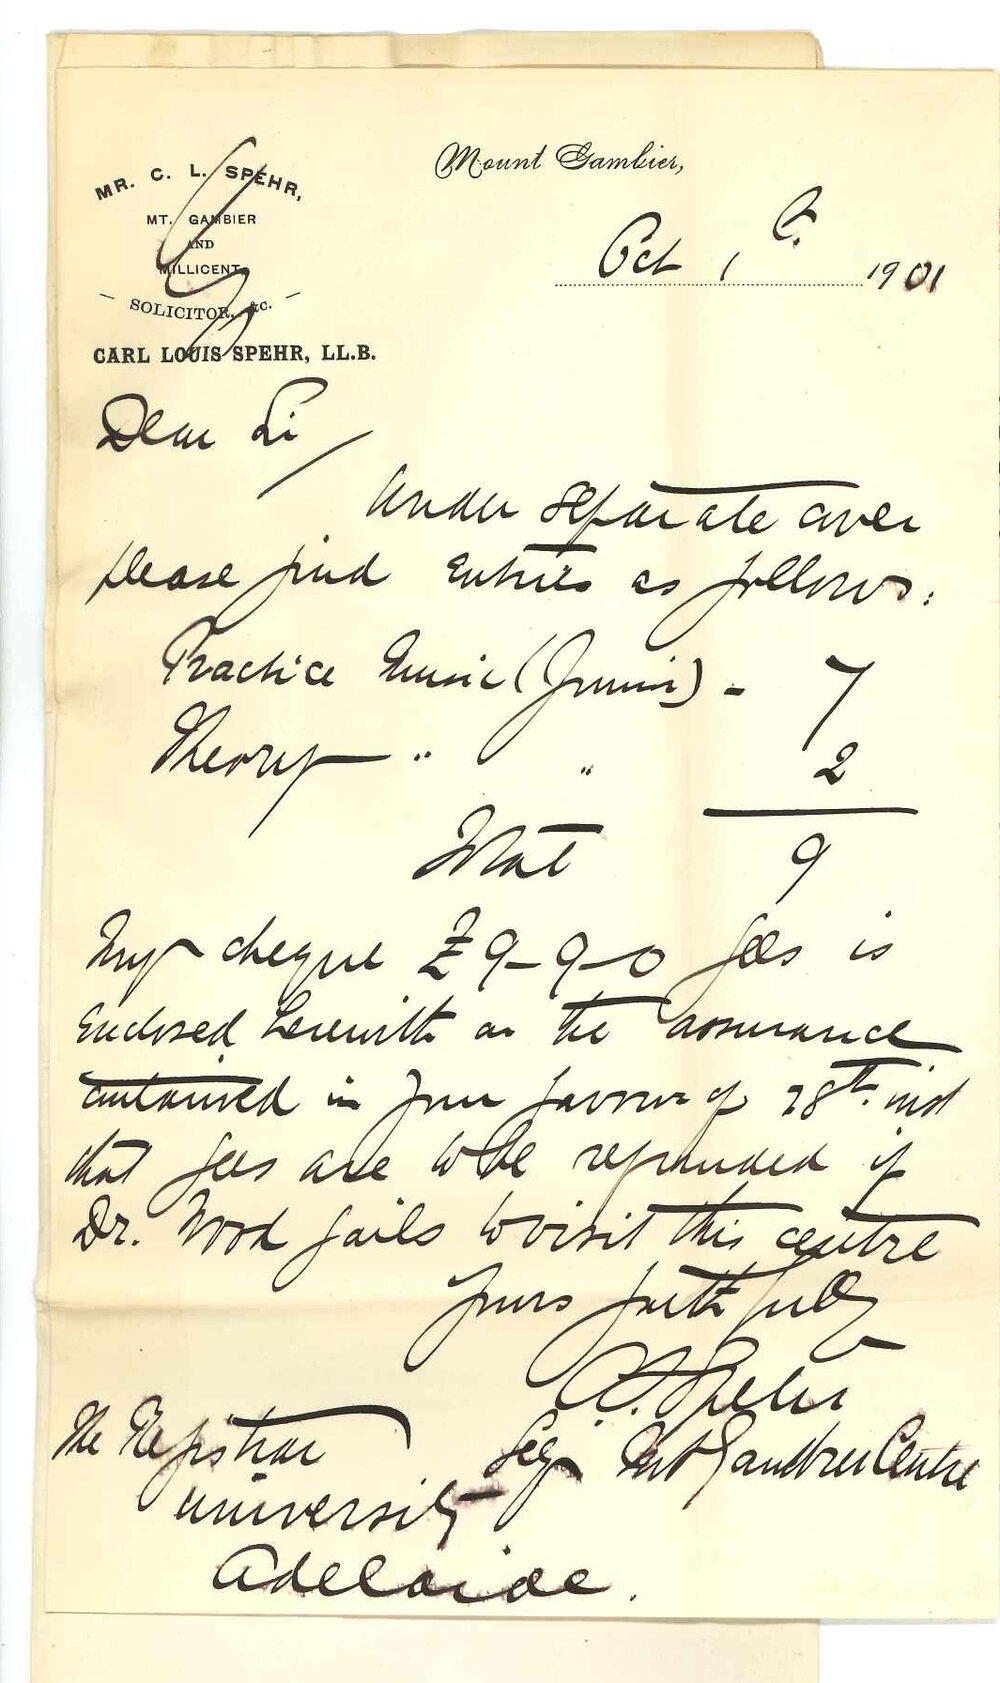 MR. C. L. SPEHR,
MT. GAMBIER
AND
MILLICENT
SOLICITOR, &C.
CARL LOUIS SPEHR, LL.B.
Mount Gambier,
Oct 1 1901
Dear Sir
Under separate cover
please find Entries as follows:
Practice Music (Junior) - 7
Theory " " 2
Total 9
My cheque £9-9-0 fees is
Enclosed herewith on the assurance
contained in your favour of 28th inst
that fees are to be refunded if
Dr. Wood fails to visit this centre
Yours faithfully
C. L. Spehr
Secy Mt Gambier Centre
The Registrar
University
Adelaide.